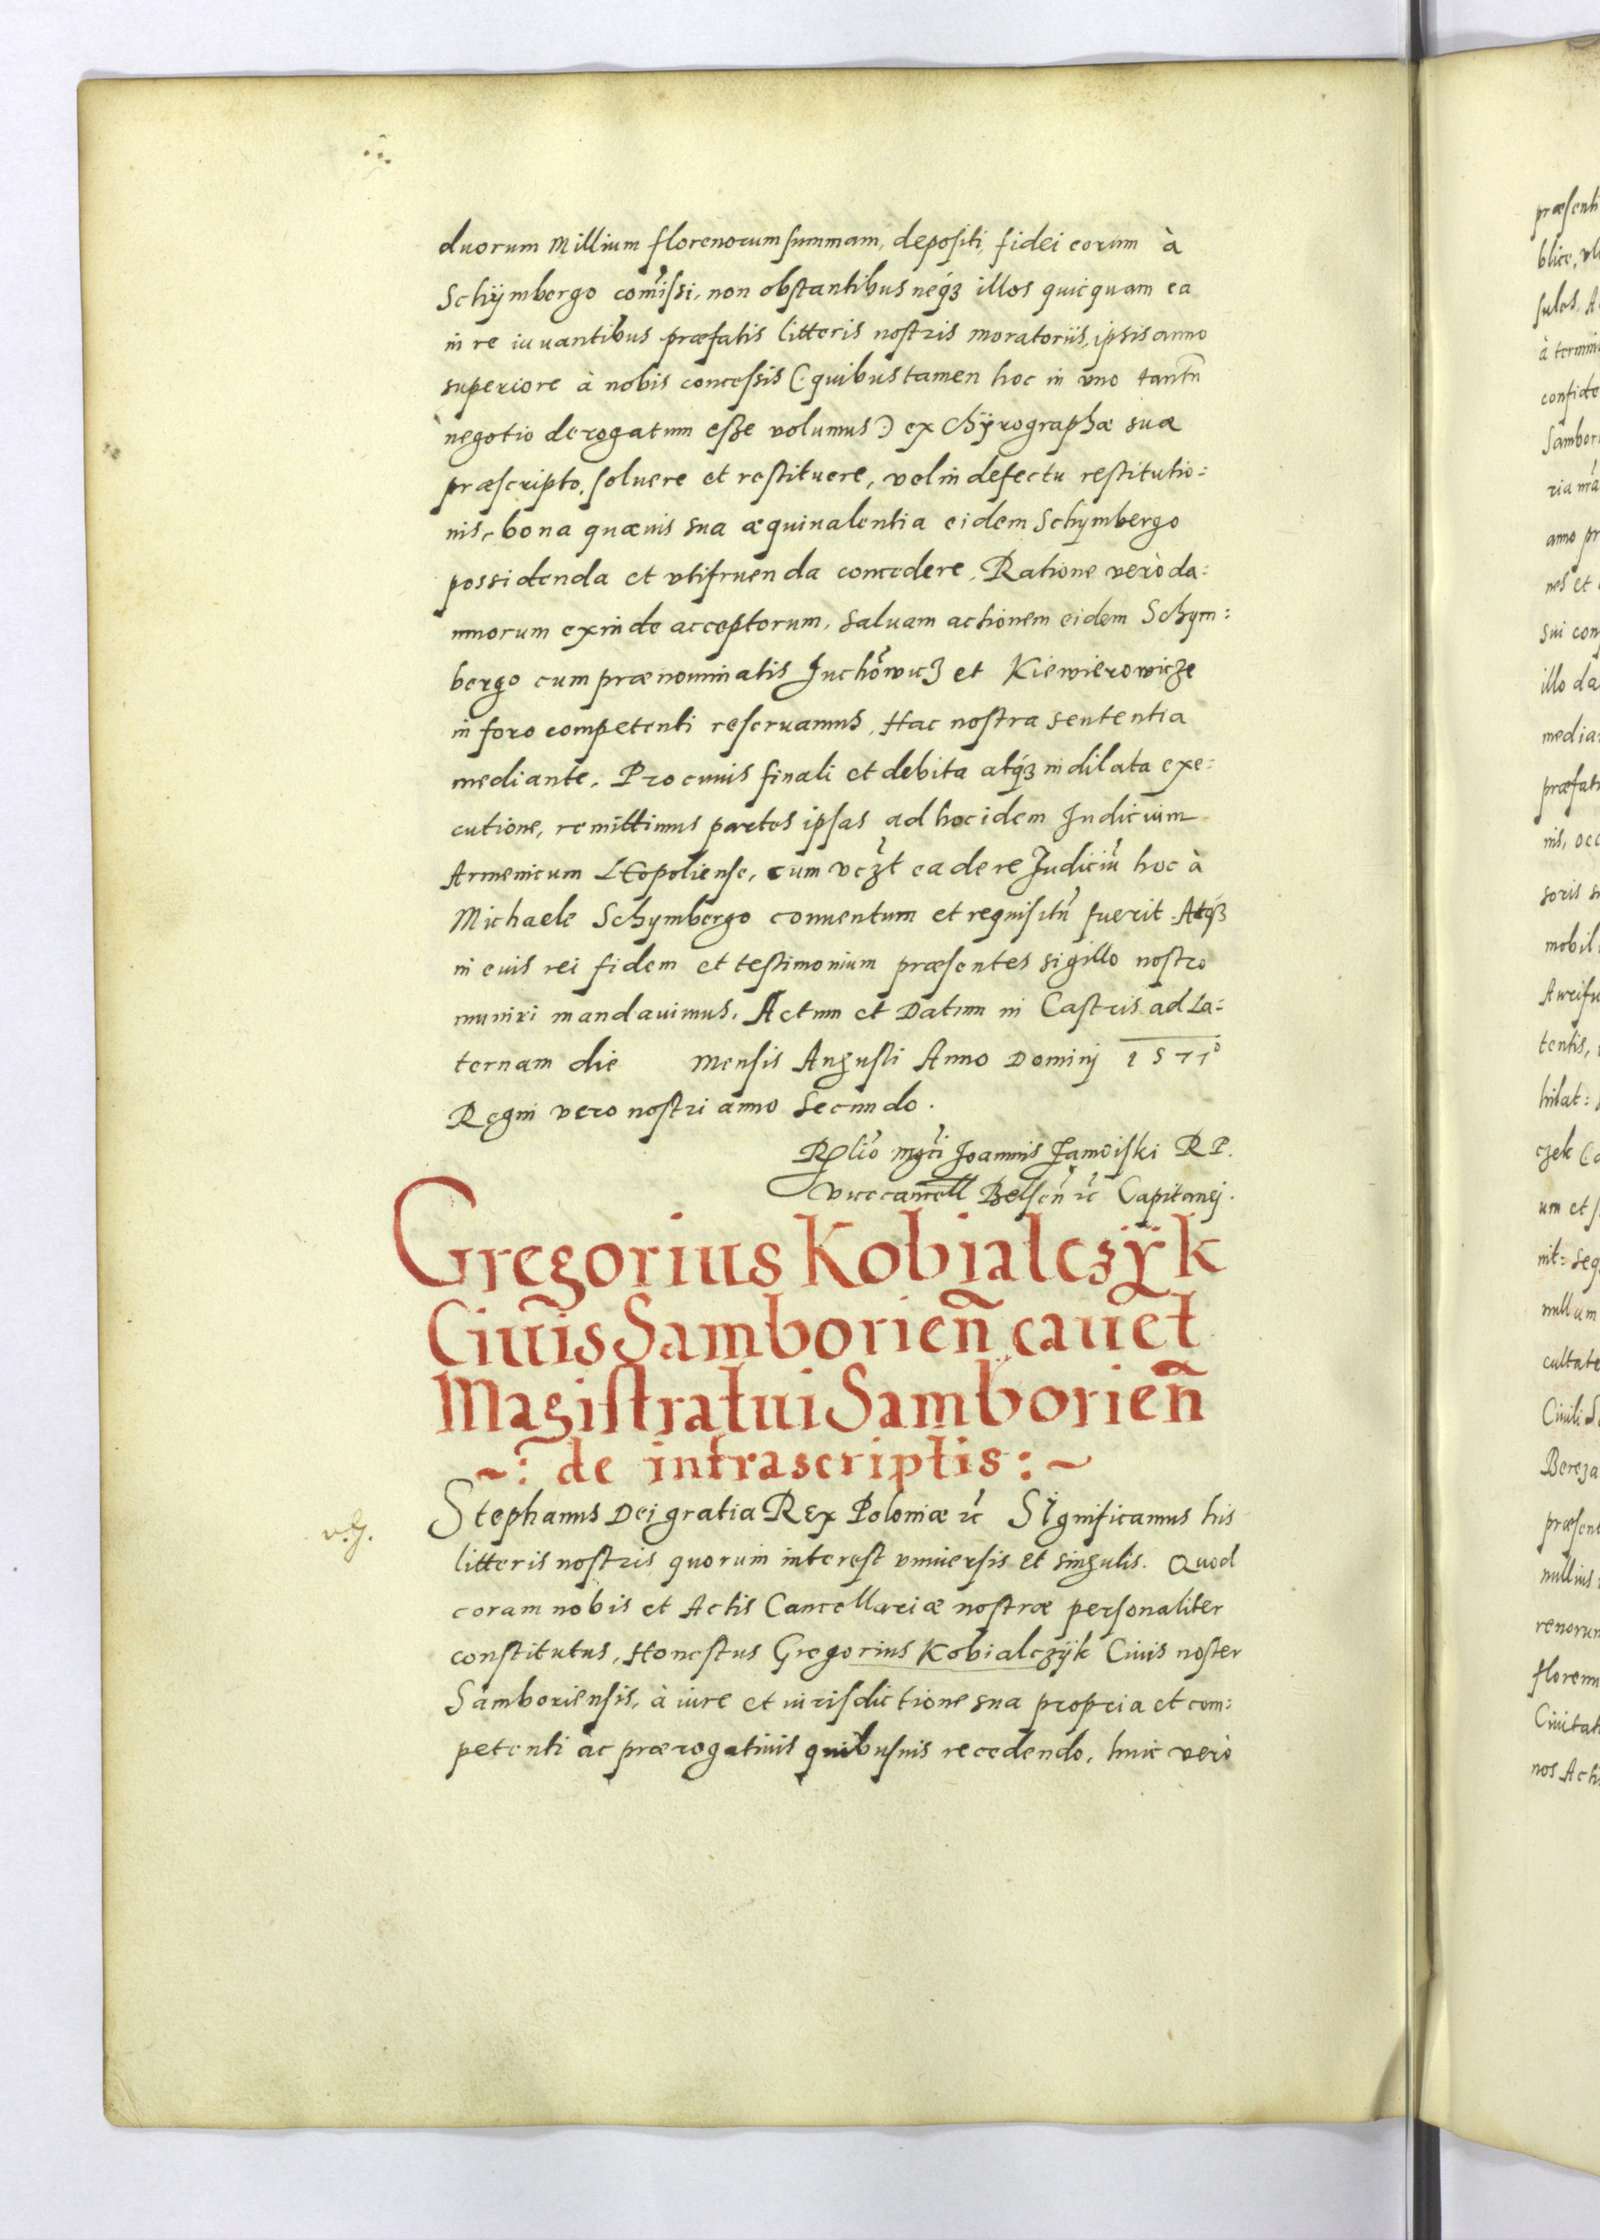 duorum Millium florenorum summam, depositi, fidei eorum à
Schÿmbergo com̃issi, non obstantibus neq́ꝫ illos quicquam ea
in re iuuantibus præfatis litteris nostris moratoriis, ipsis anno
superiore à nobis concessis (quibus tamen hoc in vno tantũ
negotio derogatum esse volumus) ex chÿrographæ suæ
præscripto, soluere et restituere, vel in defectu restitutio:
nis, bona quæuis sua æquiualentia eidem Schymbergo
possidenda et vtifruenda concedere. Ratione verò da:
mnorum exinde acceptorum, saluam actionem eidem Schym:
bergo cum prænominatis Juchõwicz et Kiewierowicze
in foro competenti reseruamus, Hac nostra sententia
mediante. Pro cuius finali et debita atq́ꝫ indilata exe:
cutione, remittimus partes ipsas ad hoc idem Iudicium
Armenicum Leopoliense, cum vcꝫt ea de re Judiciũ hoc à
Michaele Schymbergo conuentum et requisitũ fuerit. Atq́ꝫ
in cuis rei fidem et testimonium præsentes sigillo nostro
muniri mandauimus. Actum et Datum in Castris ad La:
ternam die mensis Augusti Anno Dominj 1577°
Regni vero nostri anno secundo.
Rlĩo mgci Joannis Zamoiski R P.
vicecancell Belsen̄ ꝛc̃ Capitanej.
Gregorius Kobialczÿk
Ciuis Samborien̄ cauet
Magistratui Samborien̄
~: de infrascriptis: ~
Stephanus Dei gratia Rex Poloniæ ꝛc̃ Significamus his
litteris nostris quorum interest vniuersis et singulis. Quod
coram nobis et Actis Cancellariæ nostræ personaliter
constitutus, Honestus Gregorius Kobialczÿk Ciuis noster
Samboriensis, à iure et iurisdictione sua propria et com:
petenti ac prærogatiuis quibusuis recedendo, huic verò
præsenti
sulos, A
à termin
confide
Sambor
anno pr
nes et
sui con
illo da
media
præfat
nis, occ
soris su
mobil
Aurifu
tentis,
hilat:
czek Co
um et s
nit: seq
nullum
cultate
Ciuili S
Bereza
præsent
nullius
renorum
floren
Ciuitat
nos Acti